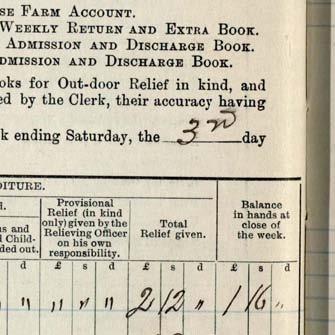 SE FARM ACCOUNT.
WEEKLY RETURN AND EXTRA BOOK.
ADMISSION AND DISCHARGE BOOK.
DMISSION AND DISCHARGE BOOK.
oks for Out-door Relief in kind, and
ed by the Clerk, their accuracy having
k ending Saturday, the 3rd day
DITURE.
d.
ns and
l Child-
ded out.
Provisional
Relief (in kind
only) given by the
Relieving Officer
on his own
responsibility.
Total
Relief given.
Balance
in hands at
close of
the week.
s d £ s d £ s d £ s d
" " " " " 2 12 " 1 16 "